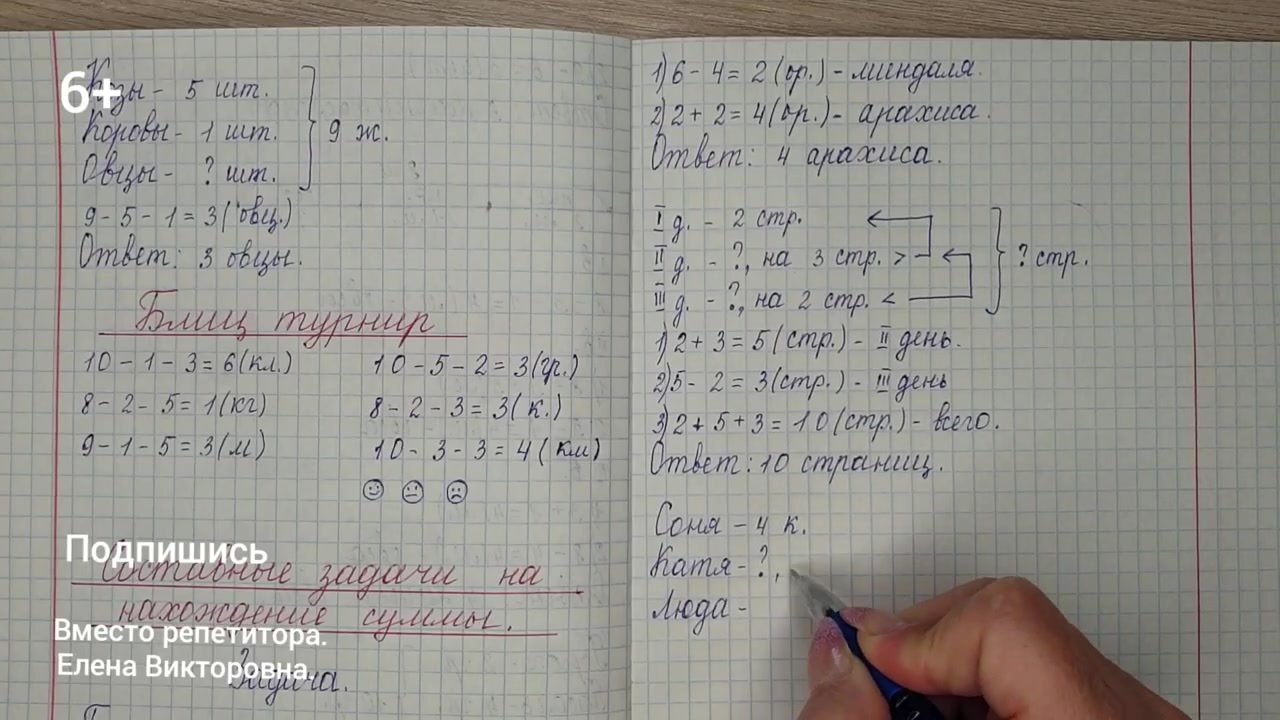 6+
Козы - 5 шт.
Коровы - 1 шт.
Овцы - ? шт.
9 ж.
9 - 5 - 1 = 3 (овц.)
Ответ: 3 овцы.
Блиц турнир
10 - 1 - 3 = 6 (кл.) 10 - 5 - 2 = 3 (гр.)
8 - 2 - 5 = 1 (кг) 8 - 2 - 3 = 3 (к.)
9 - 1 - 5 = 3 (м) 10 - 3 - 3 = 4 (км)
Подпишись
Составные задачи на
нахождение суммы.
Вместо репетитора.
Елена Викторовна.
Задача.
1) 6 - 4 = 2 (ор.) - миндаля.
2) 2 + 2 = 4 (ор.) - арахиса.
Ответ: 4 арахиса.
I д. - 2 стр.
II д. - ?, на 3 стр. >
III д. - ?, на 2 стр. <
? стр.
1) 2 + 3 = 5 (стр.) - II день.
2) 5 - 2 = 3 (стр.) - III день
3) 2 + 5 + 3 = 10 (стр.) - всего.
Ответ: 10 страниц.
Соня - 4 к.
Катя - ?,
Люда -